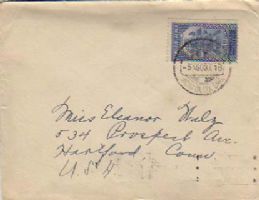 Miss Eleanor Walz
534 Prospect Ave.
Hartford Conn.
U.S.A